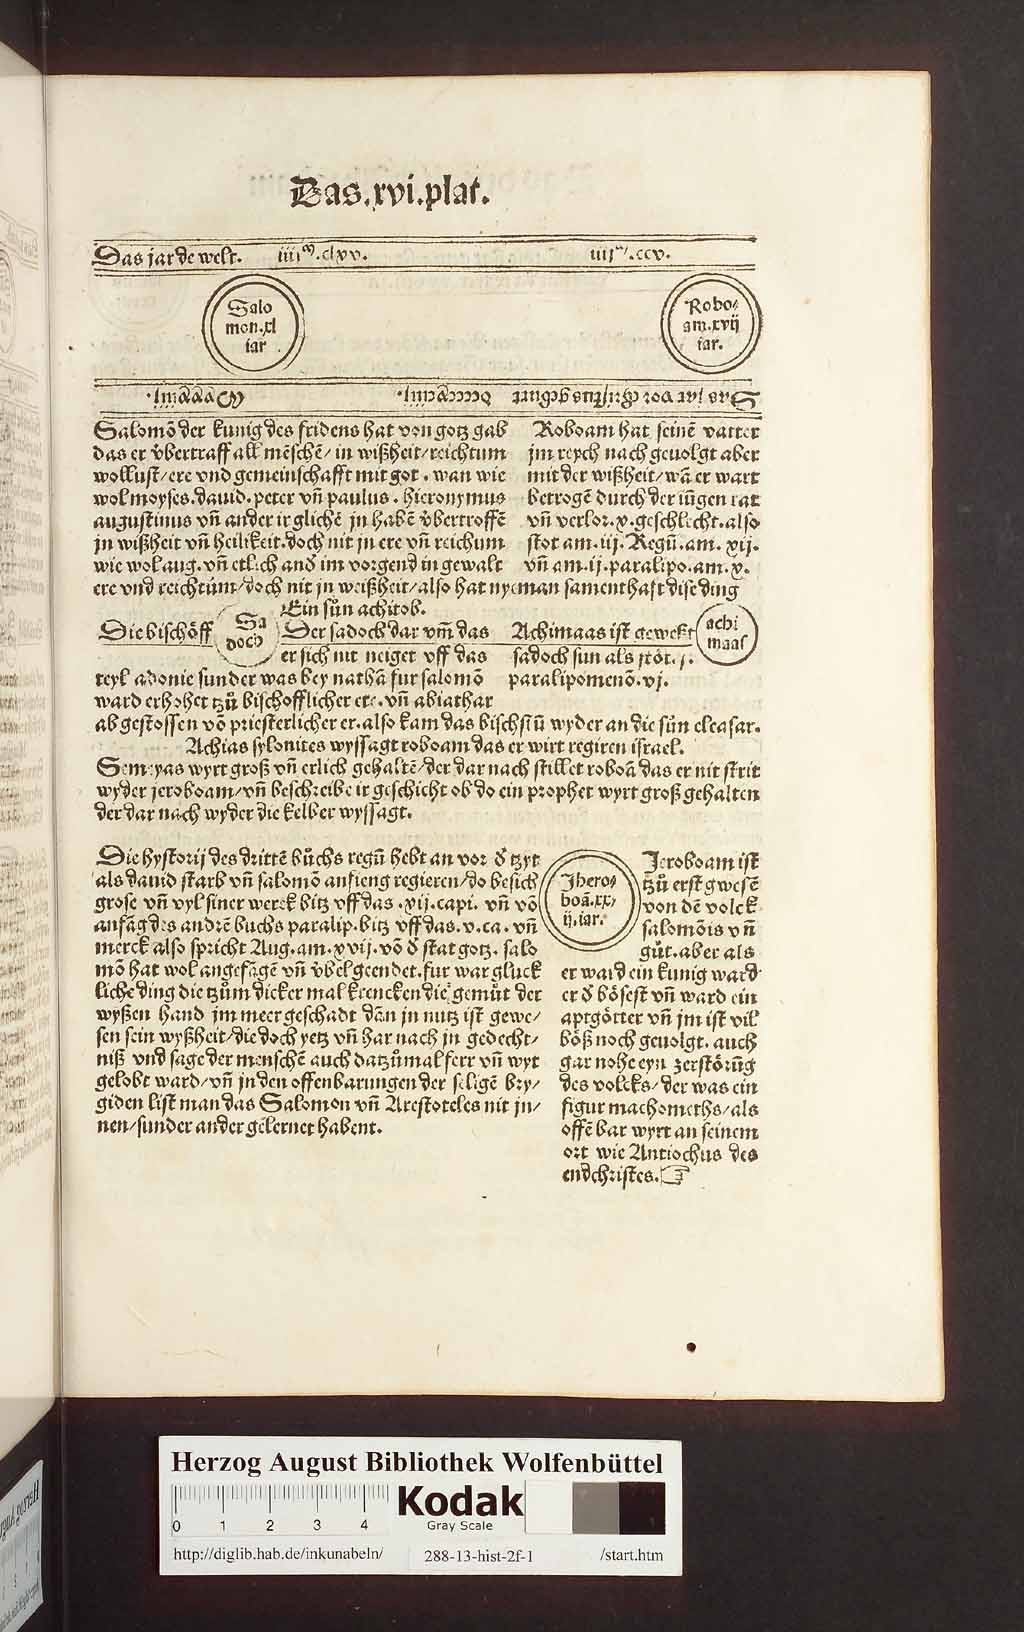 Das.xvi.plat.
Das jar de welt. iiiiᵐ.clxv. iiiiᵐ.ccv.
Salo
mon.xl
iar
Robo⸗
am.xvij
iar.
Das jar vor christus geburt
Salomō der kunig des fridens hat von gotz gab
das er v̊bertraff all mēschē/ in wißheit/reichtum
wollust/ere vnd gemeinschafft mit got . wan wie
wol moyses.dauid.peter vn̄ paulus . hieronymus
augustinus vn̄ ander ir glichē jn habē v̊bertroffē
jn wißheit vn̄ heilikeit.doch nit jn ere vn̄ reichum
wie wol aug.vn̄ etlich and̄ im vorgend in gewalt
ere vnd reichtům/doch nit jn weißheit/also hat nyeman samenthaft dise ding
Roboam hat seinē vatter
jm reych nach geuolgt aber
mit der wißheit/wā er wart
betrogē durch der iūgen rat
vn̄ verlor.x.geschlecht.also
stot am.iij.Regū.am.xij.
vn̄ am.ij.paralipo.am.x.
Ein sůn achitob.
Die bischöff
Sa
doch
Der sadoch dar vm̄ das
er sich nit neiget vff das
teyl adonie sunder was bey nathā fur salomō
ward erhöhet tzů bischofflicher ere.vn̄ abiathar
Achimaas ist gewest
sadoch sun als stōt.j.
paralipomenō.vj.
achi
maas
abgestossen vō priesterlicher er.also kam das bischstū wyder an die sün eleasar.
Achias sylonites wyssagt roboam das er wirt regiren israel.
Semeyas wyrt groß vn̄ erlich gehaltē/der dar nach stillet roboā das er nit strit
wyder jeroboam/vn̄ beschreibe ir geschicht ob do ein prophet wyrt groß gehalten
der dar nach wyder die kelber wyssagt.
Die hystorij des drittē bůchs regū hebt an vor d̄ tzyt
als dauid starb vn̄ salomō anfieng regieren/do besich
grose vn̄ vyl siner werck bitz vff das .xij.capi. vn̄ vō
anfāg des andrē buchs paralip.bitz vff das.v.ca. vn̄
merck also spricht Aug.am.xvij.vō d̄ stat gotz. salo
mō hat wol angefāgē vn̄ v̊bel geendet.fur war gluck
lichē ding die tzům dicker mal krencken die gemüt der
wyßen hand jm meer geschadt dān jn nutz ist gewe/
sen sein wyßheit/die doch yetz vn̄ har nach jn gedecht/
niß vnd sage der menschē auch datzůmal ferr vn̄ wyt
gelobt ward/vn̄ jn den offenbarungen der seligē bry/
giden list man das Salomon vn̄ Arestoteles nit jn/
nen/sunder ander gelernet habent.
Jhero⸗
boā.xx/
ij.iar.
Jeroboam ist
tzů erst gwesē
von dē volck
salomōis vn̄
gůt.aber als
er ward ein kunig ward
er d̄ bösest vn̄ ward ein
aptgötter vn̄ jm ist vil
böß noch geuolgt. auch
gar nohe eyn zerstörūg
des volcks/der was ein
figur machomeths/als
offē bar wyrt an seinem
ort wie Antiochus des
endchristes.☞
Herzog August Bibliothek Wolfenbüttel
0 1 2 3 4
Kodak
Gray Scale
http://diglib.hab.de/inkunabeln/ 288-13-hist-2f-1 /start.htm